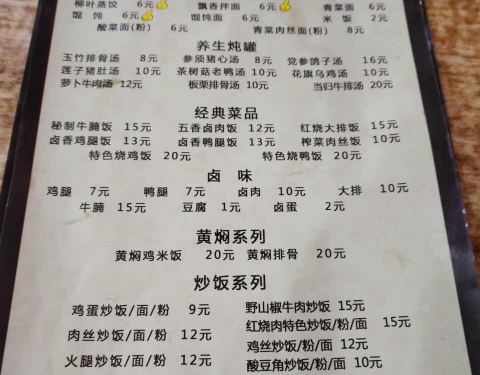 柳叶蒸饺 6元 飘香拌面 6元 青菜面 6元
馄饨 6元 馄饨面 6元 米饭 2元
酸菜面(粉) 6元 青菜肉丝面(粉) 8元
养生炖罐
玉竹排骨汤 8元 参须猪心汤 8元 党参鸽子汤 16元
莲子猪肚汤 10元 茶树菇老鸭汤 10元 花旗乌鸡汤 10元
萝卜牛肉汤 12元 板栗排骨汤 10元 当归牛排汤 20元
经典菜品
秘制牛腩饭 15元 五香卤肉饭 12元 红烧大排饭 15元
卤香鸡腿饭 13元 卤香鸭腿饭 13元 榨菜肉丝饭 10元
特色烧鸡饭 20元 特色烧鸭饭 20元
卤味
鸡腿 7元 鸭腿 7元 卤肉 10元 大排 10元
牛腩 15元 豆腐 1元 卤蛋 2元
黄焖系列
黄焖鸡米饭 20元 黄焖排骨 20元
炒饭系列
鸡蛋炒饭/面/粉 9元 野山椒牛肉炒饭 15元
肉丝炒饭/面/粉 12元 红烧肉特色炒饭/粉/面 15元
火腿炒饭/面/粉 12元 鸡丝炒饭/粉/面 12元
酸豆角炒饭/粉/面 10元